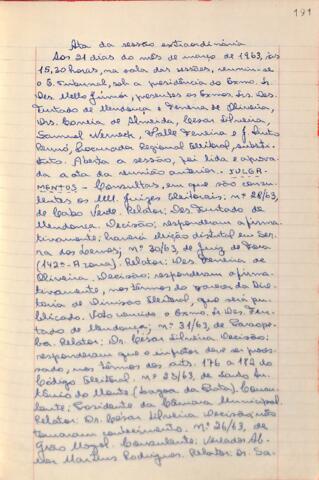 191
Ata da sessão extraordinária
Aos 21 dias do mês de março de 1963, às
15,30 horas, na sala das sessões, reuniu-se
o E. Tribunal, sob a presidência do Exmo. Sr.
Des. Mello Júnior, presentes os Exmos. Srs. Des.
Furtado de Mendonça e Ferreira de Oliveira,
Drs. Correia de Almeida, César Silveira,
Samuel Werneck, Valle Ferreira e J. Pinto
Renó, Procurador Regional Eleitoral, substi-
tuto. Aberta a sessão, foi lida e aprova-
da a ata da reunião anterior. JULGA-
MENTOS - Consultas, em que são consu-
lentes os MM. Juízes Eleitorais: nº 28/63,
de Cabo Verde. Relator: Des. Furtado de
Mendonça. Decisão: responderam afirma-
tivamente; haverá eleição distrital em Ser-
ra dos Lemes; nº 30/63, de Juiz de Fora
(142ª zona). Relator: Des. Ferreira de
Oliveira. Decisão: responderam afirma-
tivamente, nos termos do parecer da Dire-
toria de Divisão Eleitoral, que será pu-
blicado. Voto vencido o Exmo. Sr. Des. Fur-
tado de Mendonça; nº 31/63, de Paraope-
ba. Relator: Dr. César Silveira. Decisão:
responderam que o suplente deve ser pos-
sado, nos termos dos arts. 176 a 182 do
Código Eleitoral. nº 25/63, de Santo An-
tônio do Monte (Lagoa da Prata). Consu-
lente: Presidente da Câmara Municipal.
Relator: Dr. César Silveira. Decisão: não
tomaram conhecimento. nº 26/63, de
Grão Mogol. Consulente: Vereador
Martins Rodrigues. Relator: Dr. Sa-